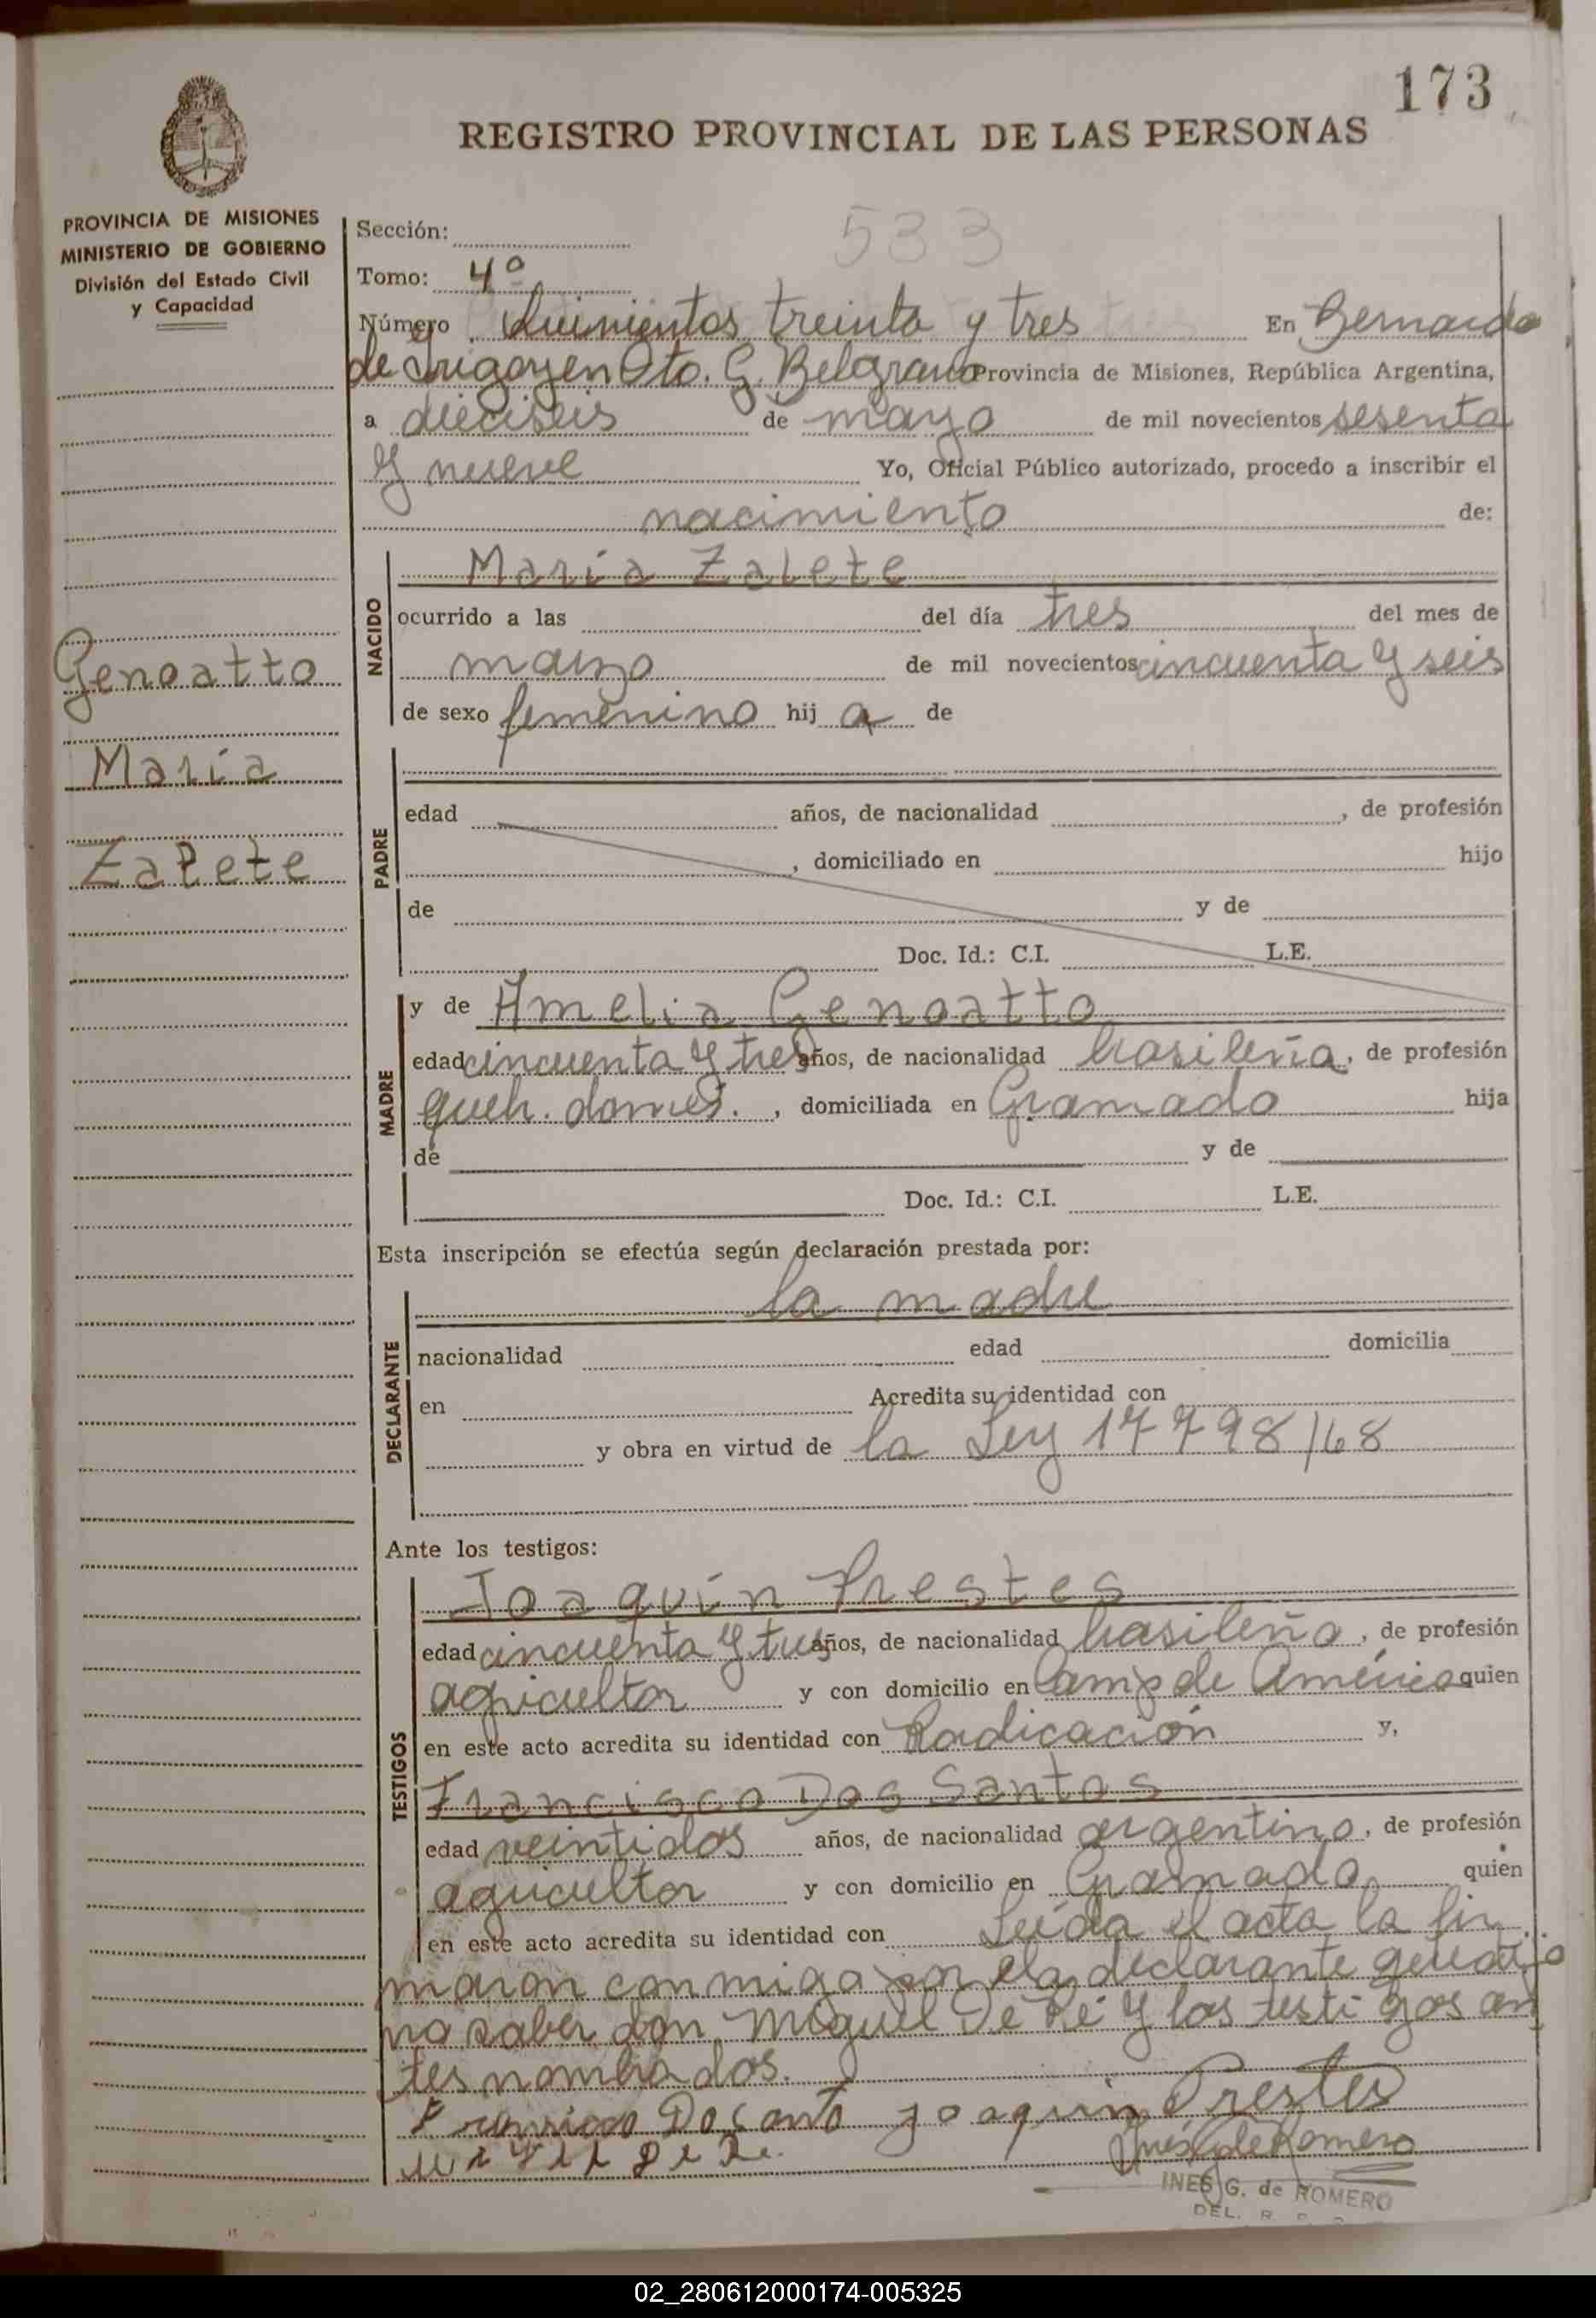 173
REGISTRO PROVINCIAL DE LAS PERSONAS
PROVINCIA DE MISIONES
MINISTERIO DE GOBIERNO
División del Estado Civil
y Capacidad
Sección:
533
Tomo: 4º
Número Quinientos treinta y tres En Bernardo
de Irigoyen Dto. G. Belgrano Provincia de Misiones, República Argentina,
a dieciseis de mayo de mil novecientos sesenta
y nueve Yo, Oficial Público autorizado, procedo a inscribir el
nacimiento de:
Genoatto
María
Zalete
NACIDO
María Zalete
ocurrido a las del día tres del mes de
marzo de mil novecientos cincuenta y seis
de sexo femenino hij a de
PADRE
edad años, de nacionalidad , de profesión
, domiciliado en hijo
de y de
Doc. Id.: C.I. L.E.
MADRE
y de Amelia Genoatto
edad cincuenta y tres años, de nacionalidad brasileña, de profesión
queh. domes. , domiciliada en Gramado hija
de y de
Doc. Id.: C.I. L.E.
Esta inscripción se efectúa según declaración prestada por:
DECLARANTE
la madre
nacionalidad edad domicilia
en Acredita su identidad con
y obra en virtud de la Ley 17798/68
Ante los testigos:
TESTIGOS
Joaquín Prestes
edad cincuenta y tres años, de nacionalidad brasileño, de profesión
agricultor y con domicilio en Camp de América quien
en este acto acredita su identidad con Radicación y,
Francisco Dos Santos
edad veintidos años, de nacionalidad argentino, de profesión
agricultor y con domicilio en Gramado quien
en este acto acredita su identidad con Leída el acta, la fir
maron conmigo por la declarante
no saber don Miguel De Ré y los testigos an
tes nombrados.
Joaquin Prestes
Inés G de Romero
INES G. de ROMERO
DEL. R.
02_280612000174-005325